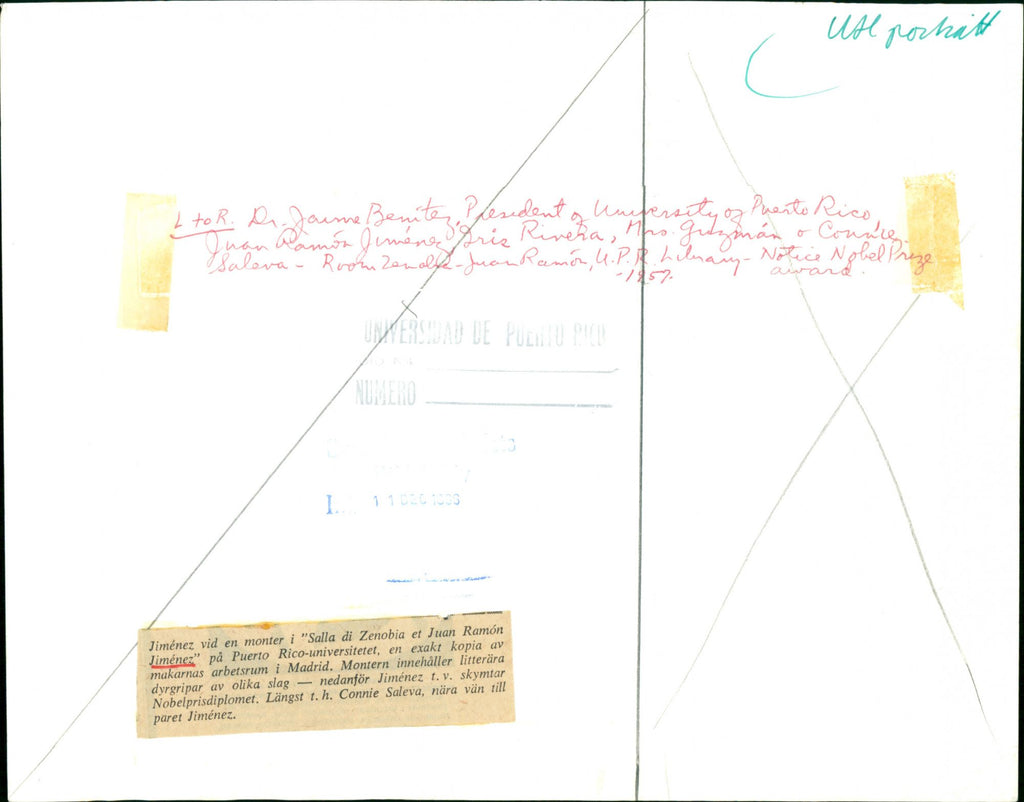 Utl porträtt
L to R. Dr. Jaime Benítez, President of University of Puerto Rico,
Juan Ramón Jiménez, Iris Rivera, Mrs. Guzmán o Connie
Saleva - Room Zenobia - Juan Ramón, U.P.R. Library - Notice Nobel Prize
-1957. award.
UNIVERSIDAD DE PUERTO RICO
NUMERO
11 DEC
Jiménez vid en monter i "Salla di Zenobia et Juan Ramón
Jiménez" på Puerto Rico-universitetet, en exakt kopia av
makarnas arbetsrum i Madrid. Montern innehåller litterära
dyrgripar av olika slag — nedanför Jiménez t.v. skymtar
Nobelprisdiplomet. Längst t.h. Connie Saleva, nära vän till
paret Jiménez.